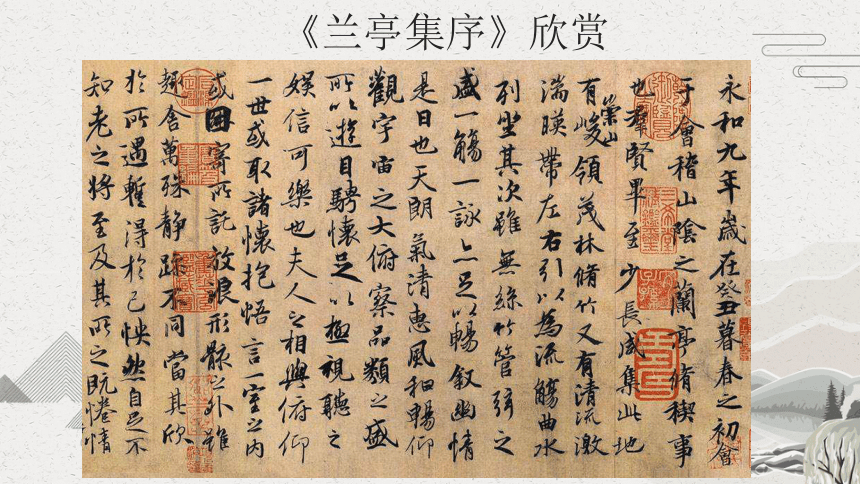 《兰亭集序》欣赏
永和九年歲在癸丑暮春之初會
于會稽山陰之蘭亭脩稧事
也羣賢畢至少長咸集此地
有崇山峻領茂林脩竹又有清流激
湍暎帶左右引以為流觴曲水
列坐其次雖無絲竹管弦之
盛一觴一詠亦足以暢敘幽情
是日也天朗氣清惠風和暢仰
觀宇宙之大俯察品類之盛
所以遊目騁懷足以極視聽之
娛信可樂也夫人之相與俯仰
一世或取諸懷抱悟言一室之內
或因寄所託放浪形骸之外雖
趣舍萬殊靜躁不同當其欣
於所遇暫得於己怏然自足不
知老之將至及其所之既惓情